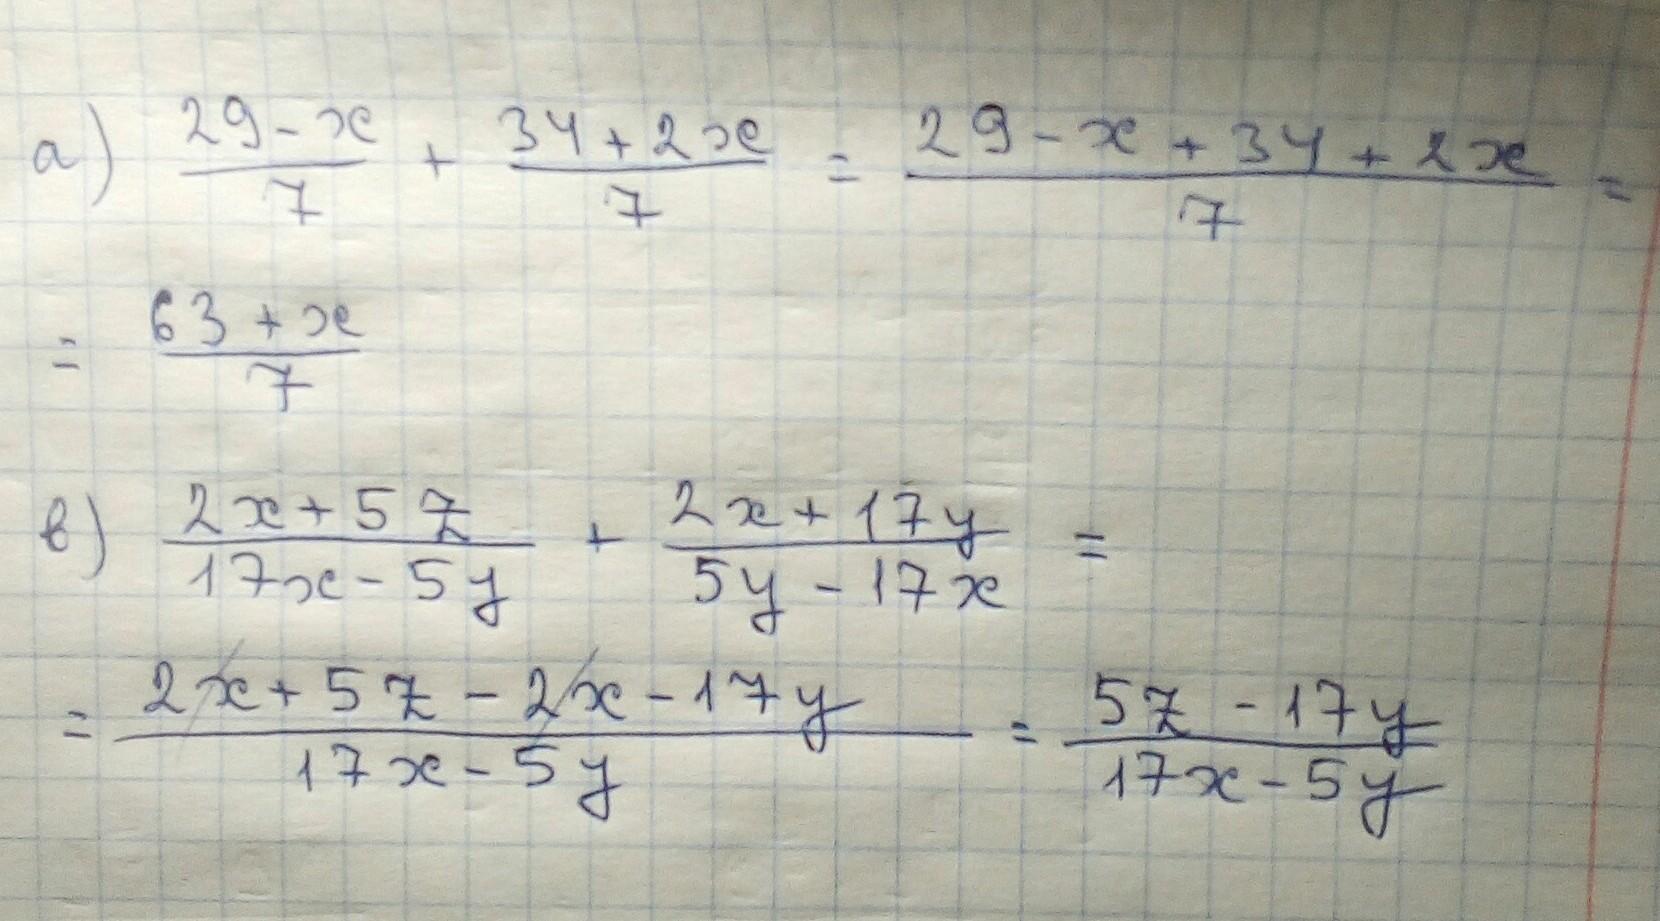 а) \frac{29-x}{7} + \frac{34+2x}{7} = \frac{29-x+34+2x}{7} =
= \frac{63+x}{7}
в) \frac{2x+5z}{17x-5y} + \frac{2x+17y}{5y-17x} =
= \frac{2x+5z-2x-17y}{17x-5y} = \frac{5z-17y}{17x-5y}